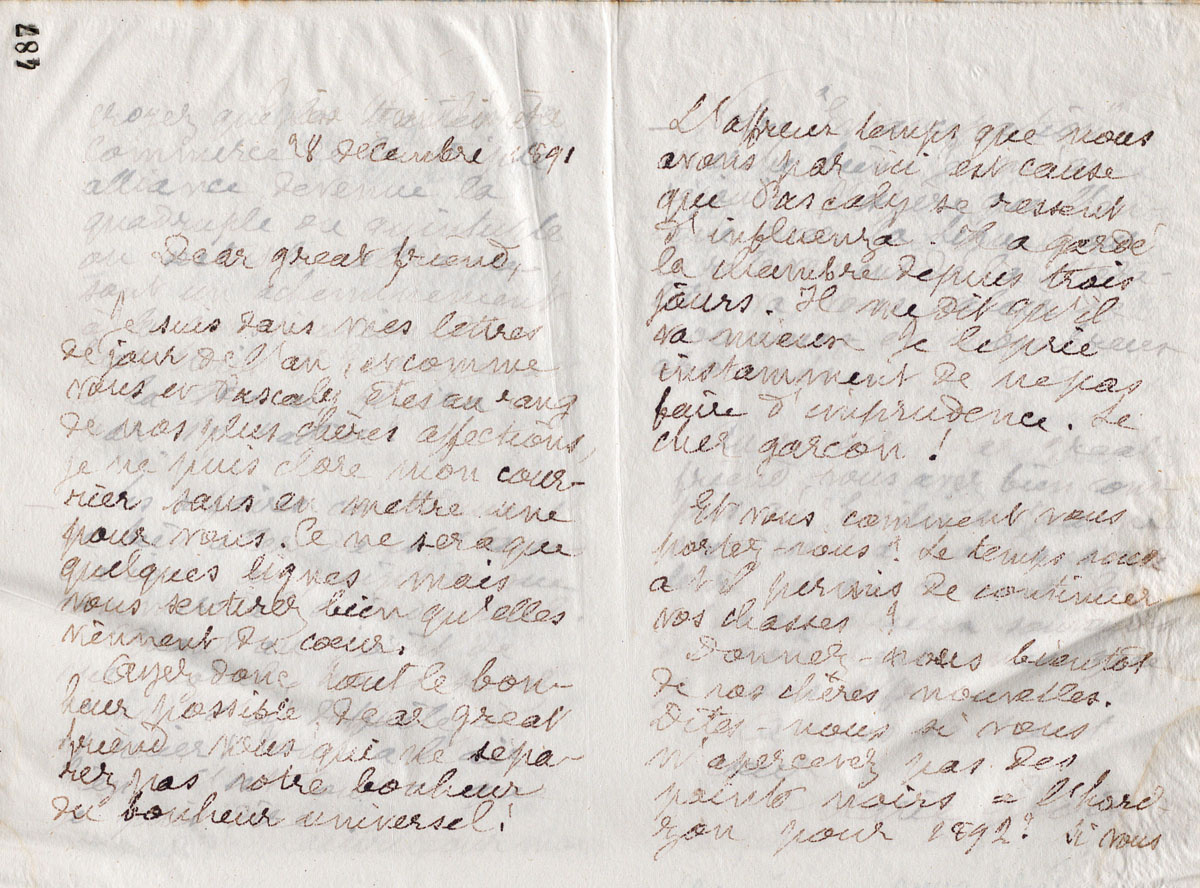 487
28 decembre 1891
Dear great friend,
Je suis dans mes lettres
de jour de l'an, et comme
vous et Pascaly êtes au rang
de nos plus chères affections,
je ne puis clore mon cour-
rier sans en mettre une
pour vous. Ce ne sera que
quelques lignes mais
vous sentirez bien qu'elles
viennent du cœur.
Ayez donc tout le bon-
heur possible dear great
friend vous qui ne sépa-
rez pas votre bonheur
du bonheur universel!
L'affreux temps que nous
avons par ici est cause
que Pascaly se ressent
d'influenza. Il a gardé
la chambre depuis trois
jours. Il me dit qu'il
va mieux. Je le prie
instamment de ne pas
faire d'imprudence. Le
cher garçon!
Et vous comment vous
portez-vous? Le temps vous
a t'il permis de continuer
vos chasses?
Donnez-nous bientôt
de vos chères nouvelles.
Dites-nous si vous
n'apercevez pas des
points noirs à l'hori-
zon pour 1892? Si vous